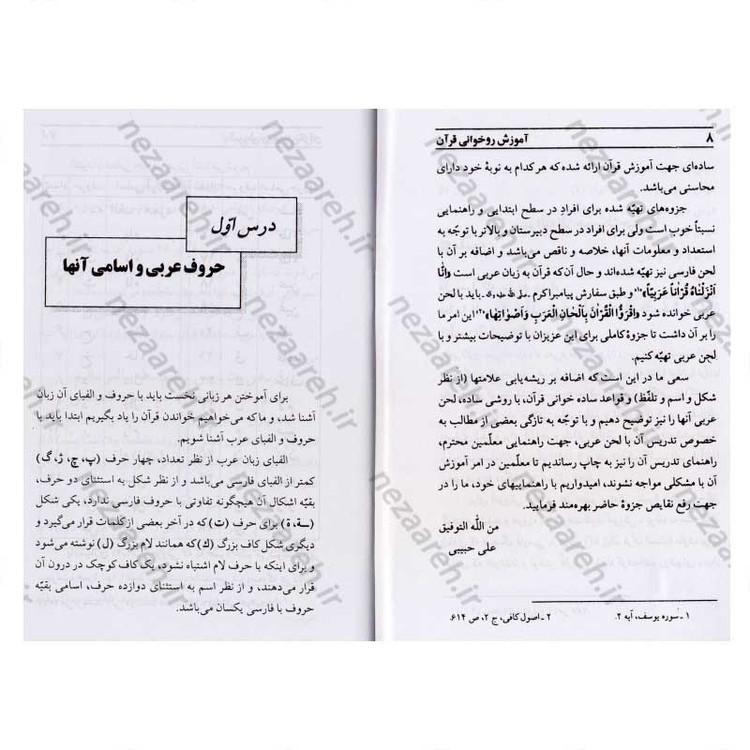 ۸ آموزش روخوانی قرآن
ساده‌ای جهت آموزش قرآن ارائه شده که هر کدام به نوبهٔ خود دارای
محاسنی می‌باشد.
جزوه‌های تهیّه شده برای افراد در سطح ابتدایی و راهنمایی
نسبتاً خوب است ولی برای افراد در سطح دبیرستان و بالاتر با توجه به
استعداد و معلومات آنها، خلاصه و ناقص می‌باشد و اضافه بر آن با
لحن فارسی نیز تهیّه شده‌اند و حال آن‌که قرآن به زبان عربی است «اِنّا
اَنْزَلْناهُ قُرْآناً عَرَبِیّاً»^۱ و طبق سفارش پیامبر اکرم باید با لحن
عربی خوانده شود «اِقْرَؤُا الْقُرْآنَ بِاَلْحانِ الْعَرَبِ وَ اَصْواتِها»^۲ این امر ما
را بر آن داشت تا جزوهٔ کاملی برای این عزیزان با توضیحات بیشتر و با
لحن عربی تهیّه کنیم.
سعی ما در این است که اضافه بر ریشه‌یابی علامتها (از نظر
شکل و اسم و تلفّظ) و قواعد ساده خوانی قرآن، با روشی ساده، لحن
عربی آنها را نیز توضیح دهیم و با توجّه به تازگی بعضی از مطالب به
خصوص تدریس آن با لحن عربی، جهت راهنمایی معلّمین محترم،
راهنمای تدریس آن را نیز به چاپ رساندیم تا معلّمین در امر آموزش
آن با مشکلی مواجه نشوند، امیدواریم با راهنماییهای خود، ما را در
جهت رفع نقایص جزوهٔ حاضر بهره‌مند فرمایید.
من اللّه التوفیق
علی حبیبی
۱ ـ سوره یوسف، آیه ۲. ۲ ـ اصول کافی، ج ۲، ص ۶۱۴.
درس اوّل
حروف عربی و اسامی آنها
برای آموختن هر زبانی نخست باید با حروف و الفبای آن زبان
آشنا شد، و ما که می‌خواهیم خواندن قرآن را یاد بگیریم ابتدا باید با
حروف و الفبای عرب آشنا شویم.
الفبای زبان عرب از نظر تعداد، چهار حرف (پ، چ، ژ، گ)
کمتر از الفبای فارسی می‌باشد و از نظر شکل به استثنای دو حرف،
بقیّه اشکال آن هیچگونه تفاوتی با حروف فارسی ندارد، یکی شکل
(ـة، ة) برای حرف (ت) که در آخر بعضی از کلمات قرار می‌گیرد و
دیگری شکل کاف بزرگ (ك) که همانند لام بزرگ (ل) نوشته می‌شود
و برای اینکه با حرف لام اشتباه نشود، یک کاف کوچک در درون آن
قرار می‌دهند، و از نظر اسم به استثنای دوازده حرف، اسامی بقیّه
حروف با فارسی یکسان می‌باشد.
nezaareh.ir
nezaareh.ir
nezaareh.ir
nezaareh.ir
nezaareh.ir
nezaareh.ir
nezaareh.ir
nezaareh.ir
nezaareh.ir